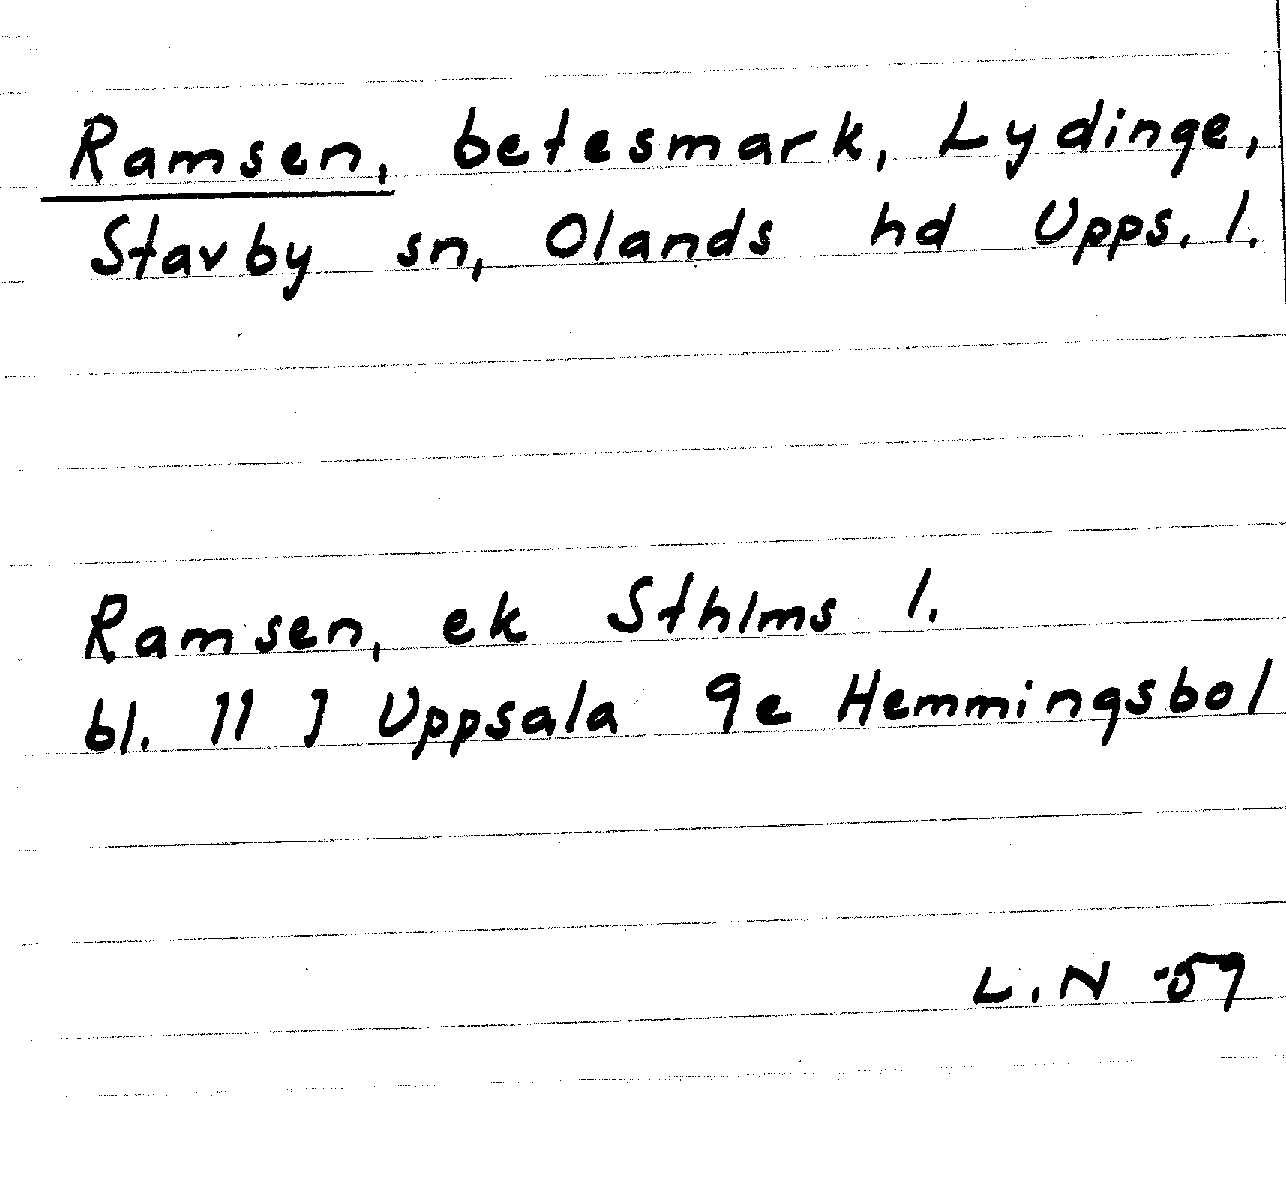 Ramsen, betesmark, Lydinge,
Stavby sn, Olands hd Upps. l.
Ramsen, ek Sthlms l.
bl. 11 J Uppsala 9e Hemmingsbol
L.N -59